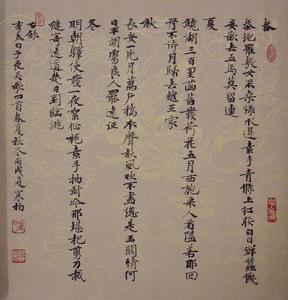 春
秦地羅敷女采桑綠水邊素手青條上紅妝白日鮮蠶饑
妾欲去五馬莫留連
夏
鏡湖三百里菡萏發荷花五月西施采人看隘若耶回
舟不待月歸去越王家
秋
長安一片月萬戶搗衣聲秋風吹不盡總是玉關情何
日平胡虜良人罷遠征
冬
明朝驛使發一夜絮征袍素手抽鍼冷那堪把剪刀裁
縫寄遠道幾日到臨洮
右錄
李太白子夜吳歌四首春夏秋冬丙戌夏寒柏